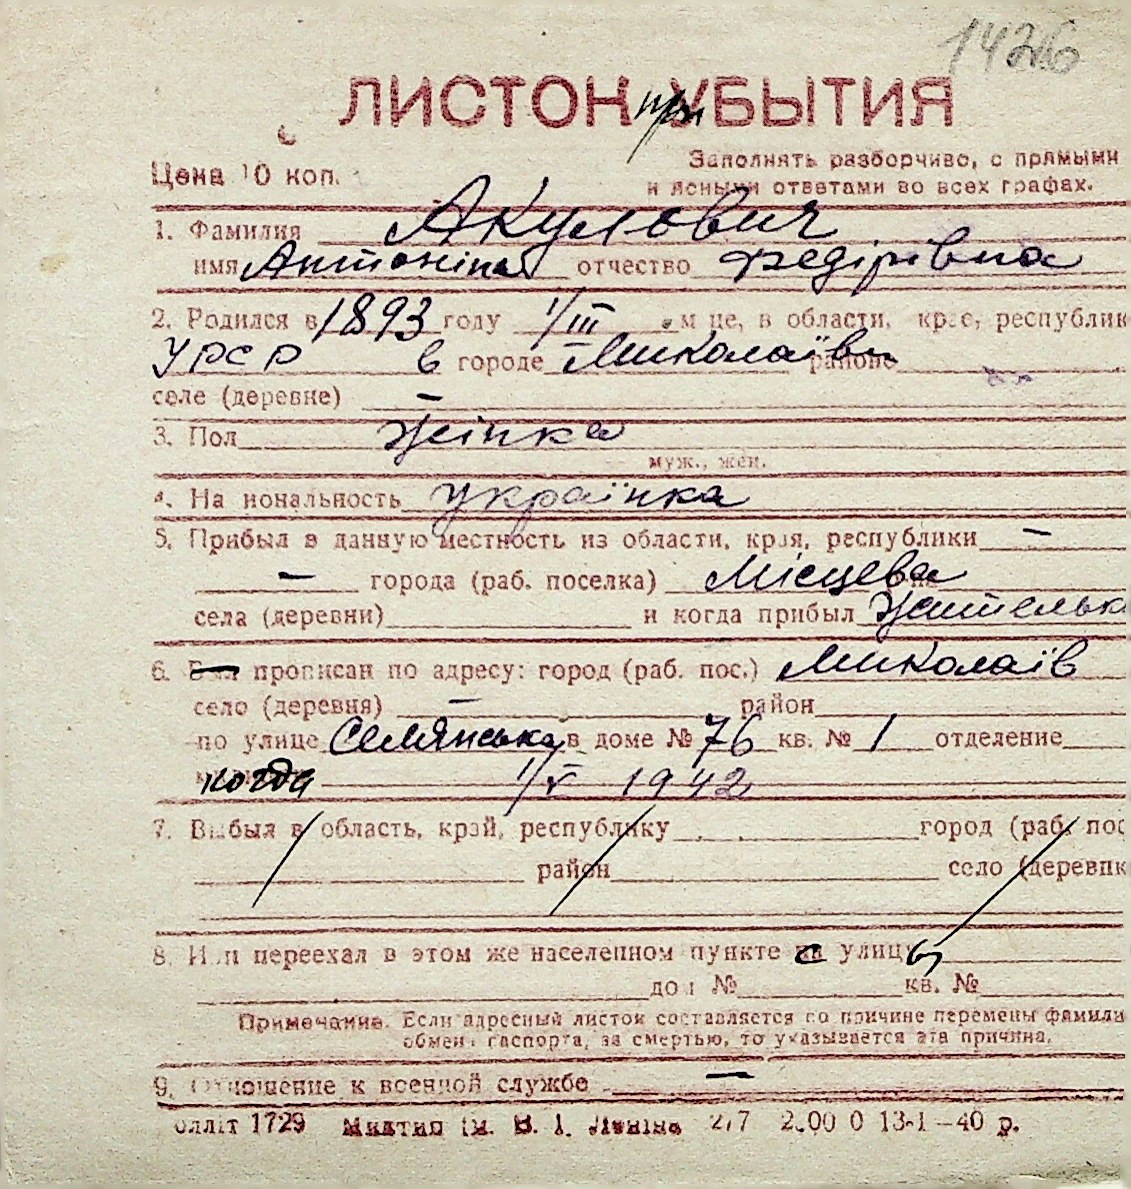 1426
ЛИСТОК при УБЫТИЯ
Цена 10 коп.
Заполнять разборчиво, с прямыми
и ясными ответами во всех графах.
1. Фамилия Акулович
имя Антоніна отчество Федірівна
2. Родился в 1893 году 1/III м-це, в области, крае, республик
УРСР в городе Миколаїві районе
селе (деревне) —
3. Пол Жінка
муж., жен.
4. Национальность Українка
5. Прибыл в данную местность из области, края, республики —
— города (раб. поселка) Місцева
села (деревни) и когда прибыл жителька
6. Был прописан по адресу: город (раб. пос.) Миколаїв
село (деревня) — район
по улице Селянська в доме № 76 кв. № 1 отделение
когда 1/V 1942
7. Выбыл в область, край, республику город (раб. пос
район село (деревпк
8. Или переехал в этом же населенном пункте с улицы
дом № кв. №
Примечание. Если адресный листок составляется по причине перемены фамили
обмена паспорта, за смертью, то указывается эта причина.
9. Отношение к военной службе —
олліт 1729 Миктип ім. В. І. Леніна 2/7 2.00 0 13-1—40 р.